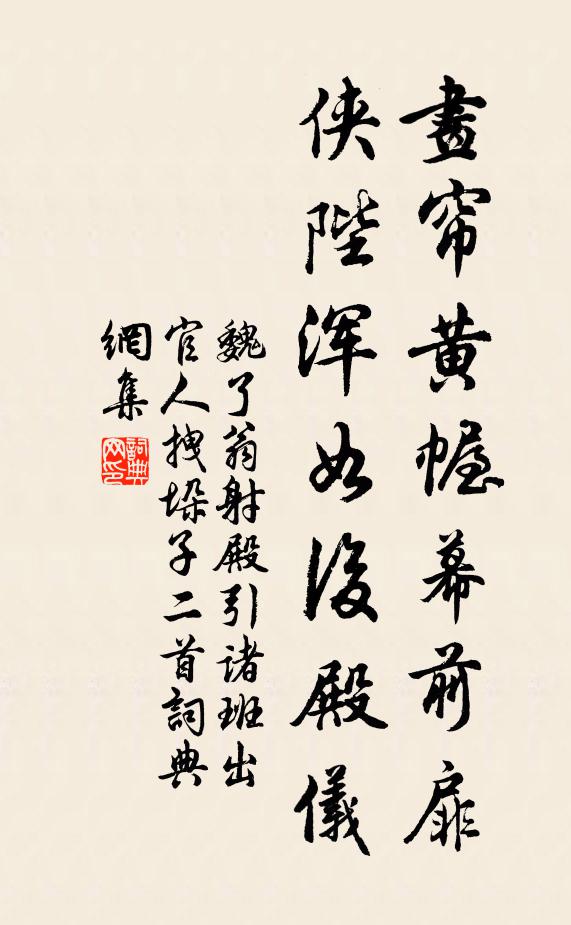 畫帘黄幄幕前扉
俠陛渾如後殿儀
魏了翁射殿引诸班出
官人拽垛子二首詞典
網集
詞典网印